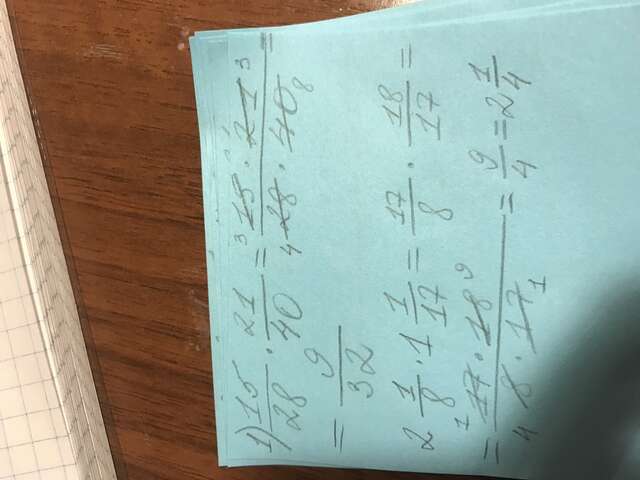 1) 15/28 · 21/40 = 3 15 · 21 3 / 4 28 · 40 8 =
= 9/32
2 1/8 · 1 1/17 = 17/8 · 18/17 =
= 1 17 · 18 9 / 4 8 · 17 1 = 9/4 = 2 1/4